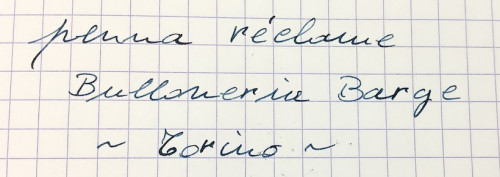 penna réclame
Bulloneria Barge
~ Torino ~